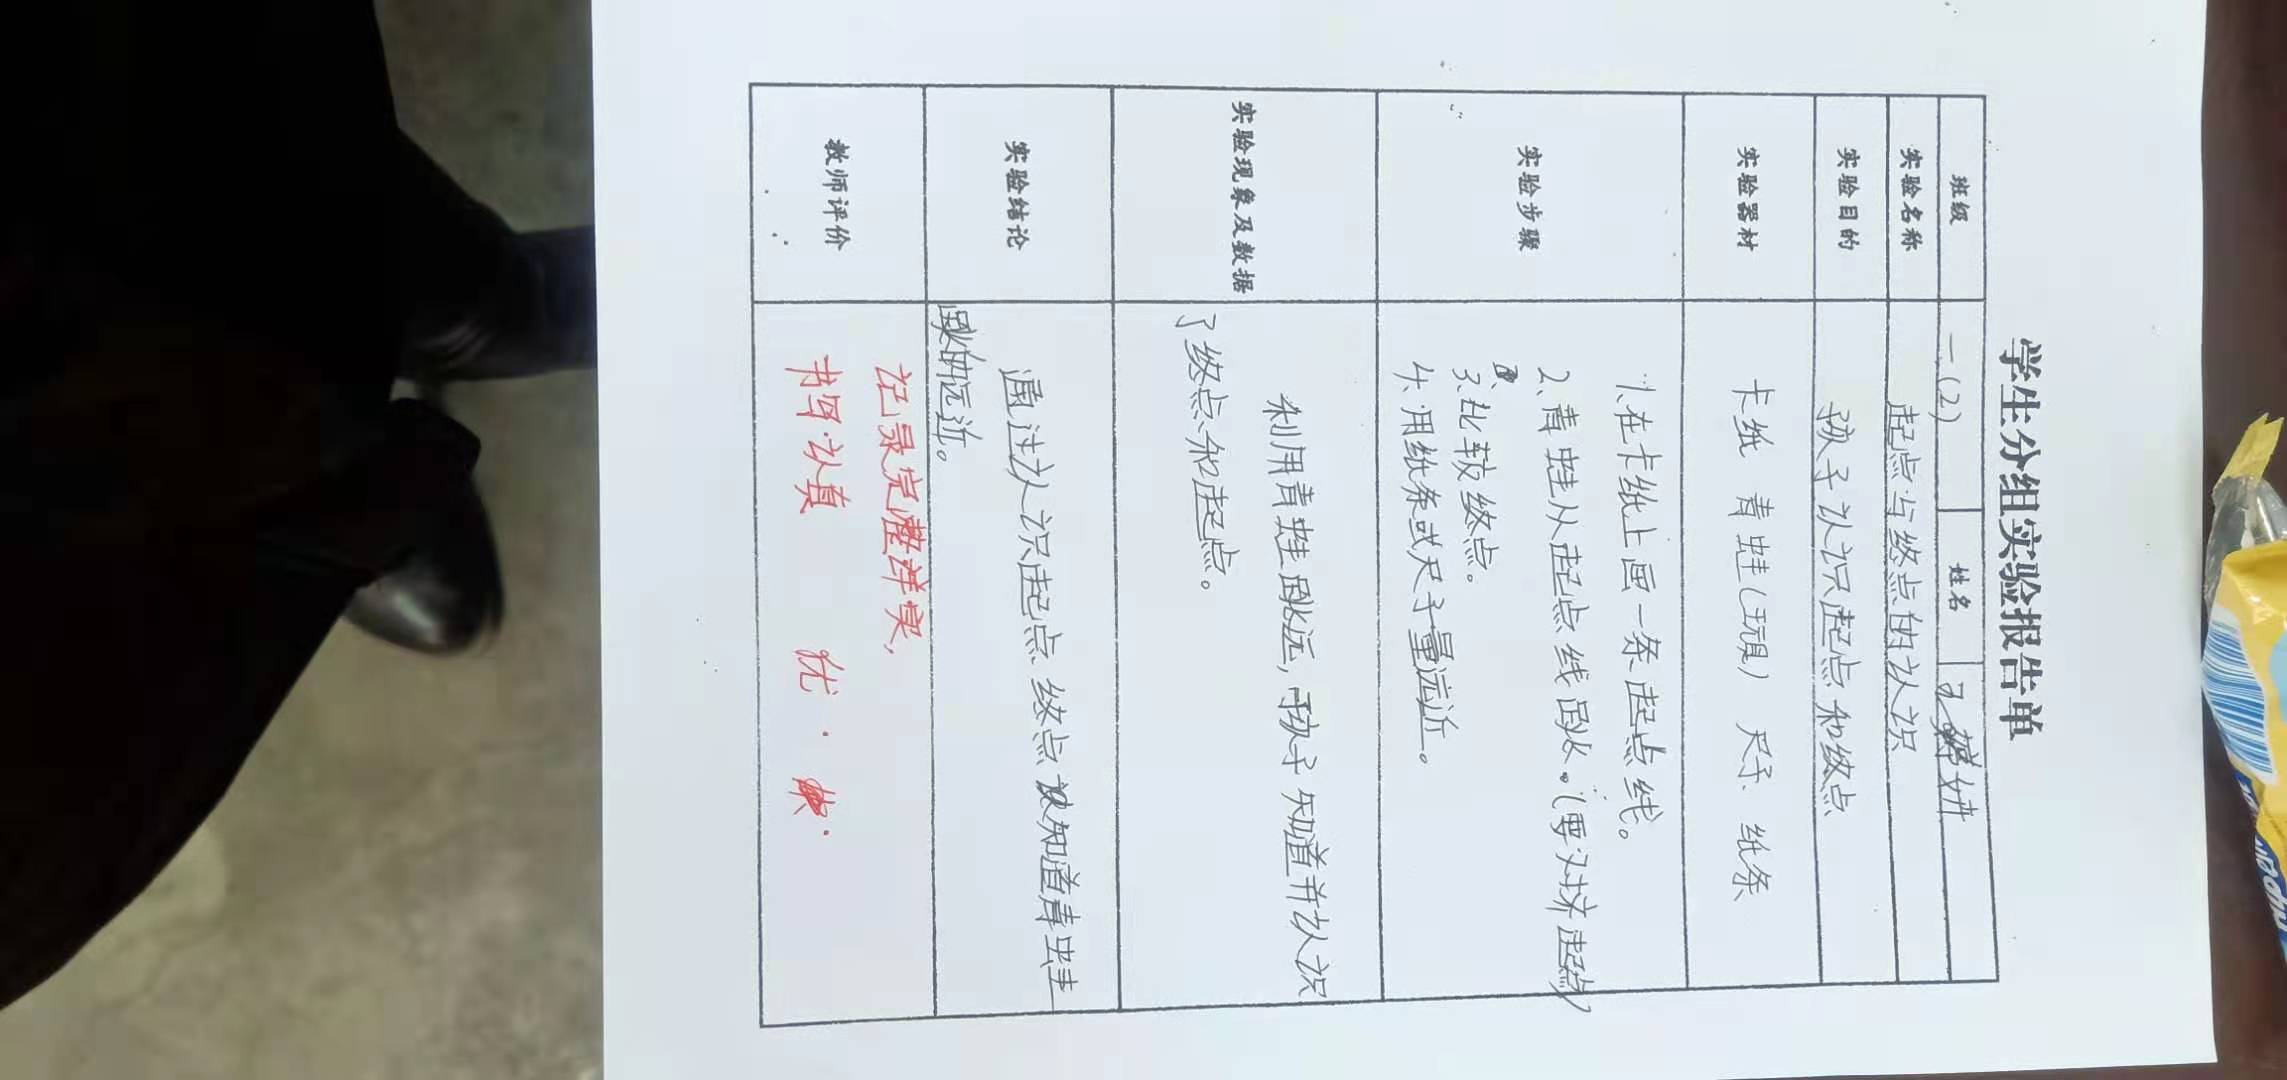 学生分组实验报告单
班级 一(2) 姓名
实验名称 起点与终点的认识
实验目的 孩子认识起点和终点
实验器材 卡纸 青蛙(玩具) 尺子、纸条
实验步骤
1、在卡纸上画一条起点线。
2、青蛙从起点线跳。(要对济起点)
3、比较终点。
4、用纸条或尺子量远近。
实验现象及数据
利用青蛙跳远,孩子知道并认识
了终点和起点。
实验结论
通过认识起点、终点 知道青蛙
跳的远近。
教师评价
记录完整详实,
书写认真 优